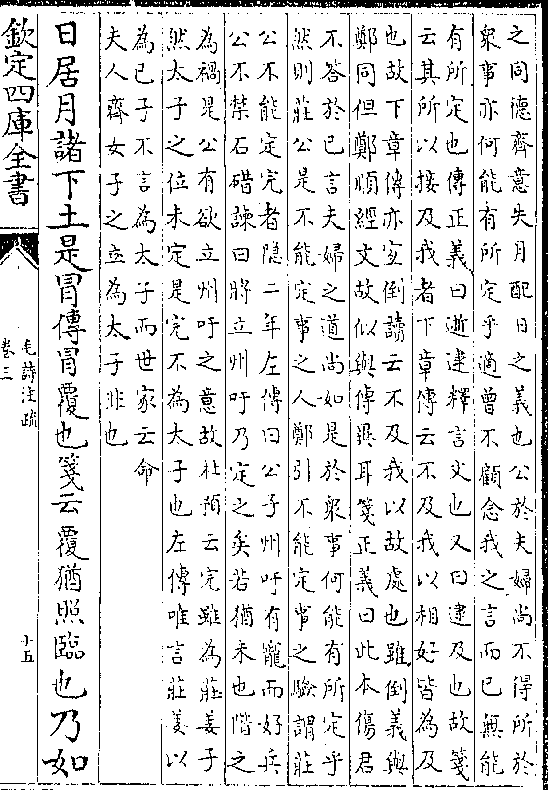 之同德齊意失月配日之義也公於夫婦尚不得所於
衆事亦何能有所定乎適曾不顧念我之言而已無能
有所定也傳正義曰逝逮釋言文也又曰逮及也故箋
云其所以接及我者下章傳云不及我以相好皆為及
也故下章傳亦宜倒讀云不及我以故處也雖倒義與
鄭同但鄭順經文故似與傳異耳箋正義曰此本傷君
不答於已言夫婦之道尚如是於衆事何能有所定乎
然則莊公是不能定事之人鄭引不能定事之驗謂莊
公不能定完者隱二年左傳曰公子州吁有寵而好兵
公不禁石碏諫曰將立州吁乃定之矣若猶未也階之
為禍是公有欲立州吁之意故杜預云完雖為莊姜子
然太子之位未定是完不為太子也左傳唯言莊姜以
為已子不言為太子而世家云命
夫人齊女子之立為太子非也
日居月諸下土是冒傳冒覆也箋云覆猶照臨也乃如
欽定四庫全書
毛詩注疏
卷三
十五